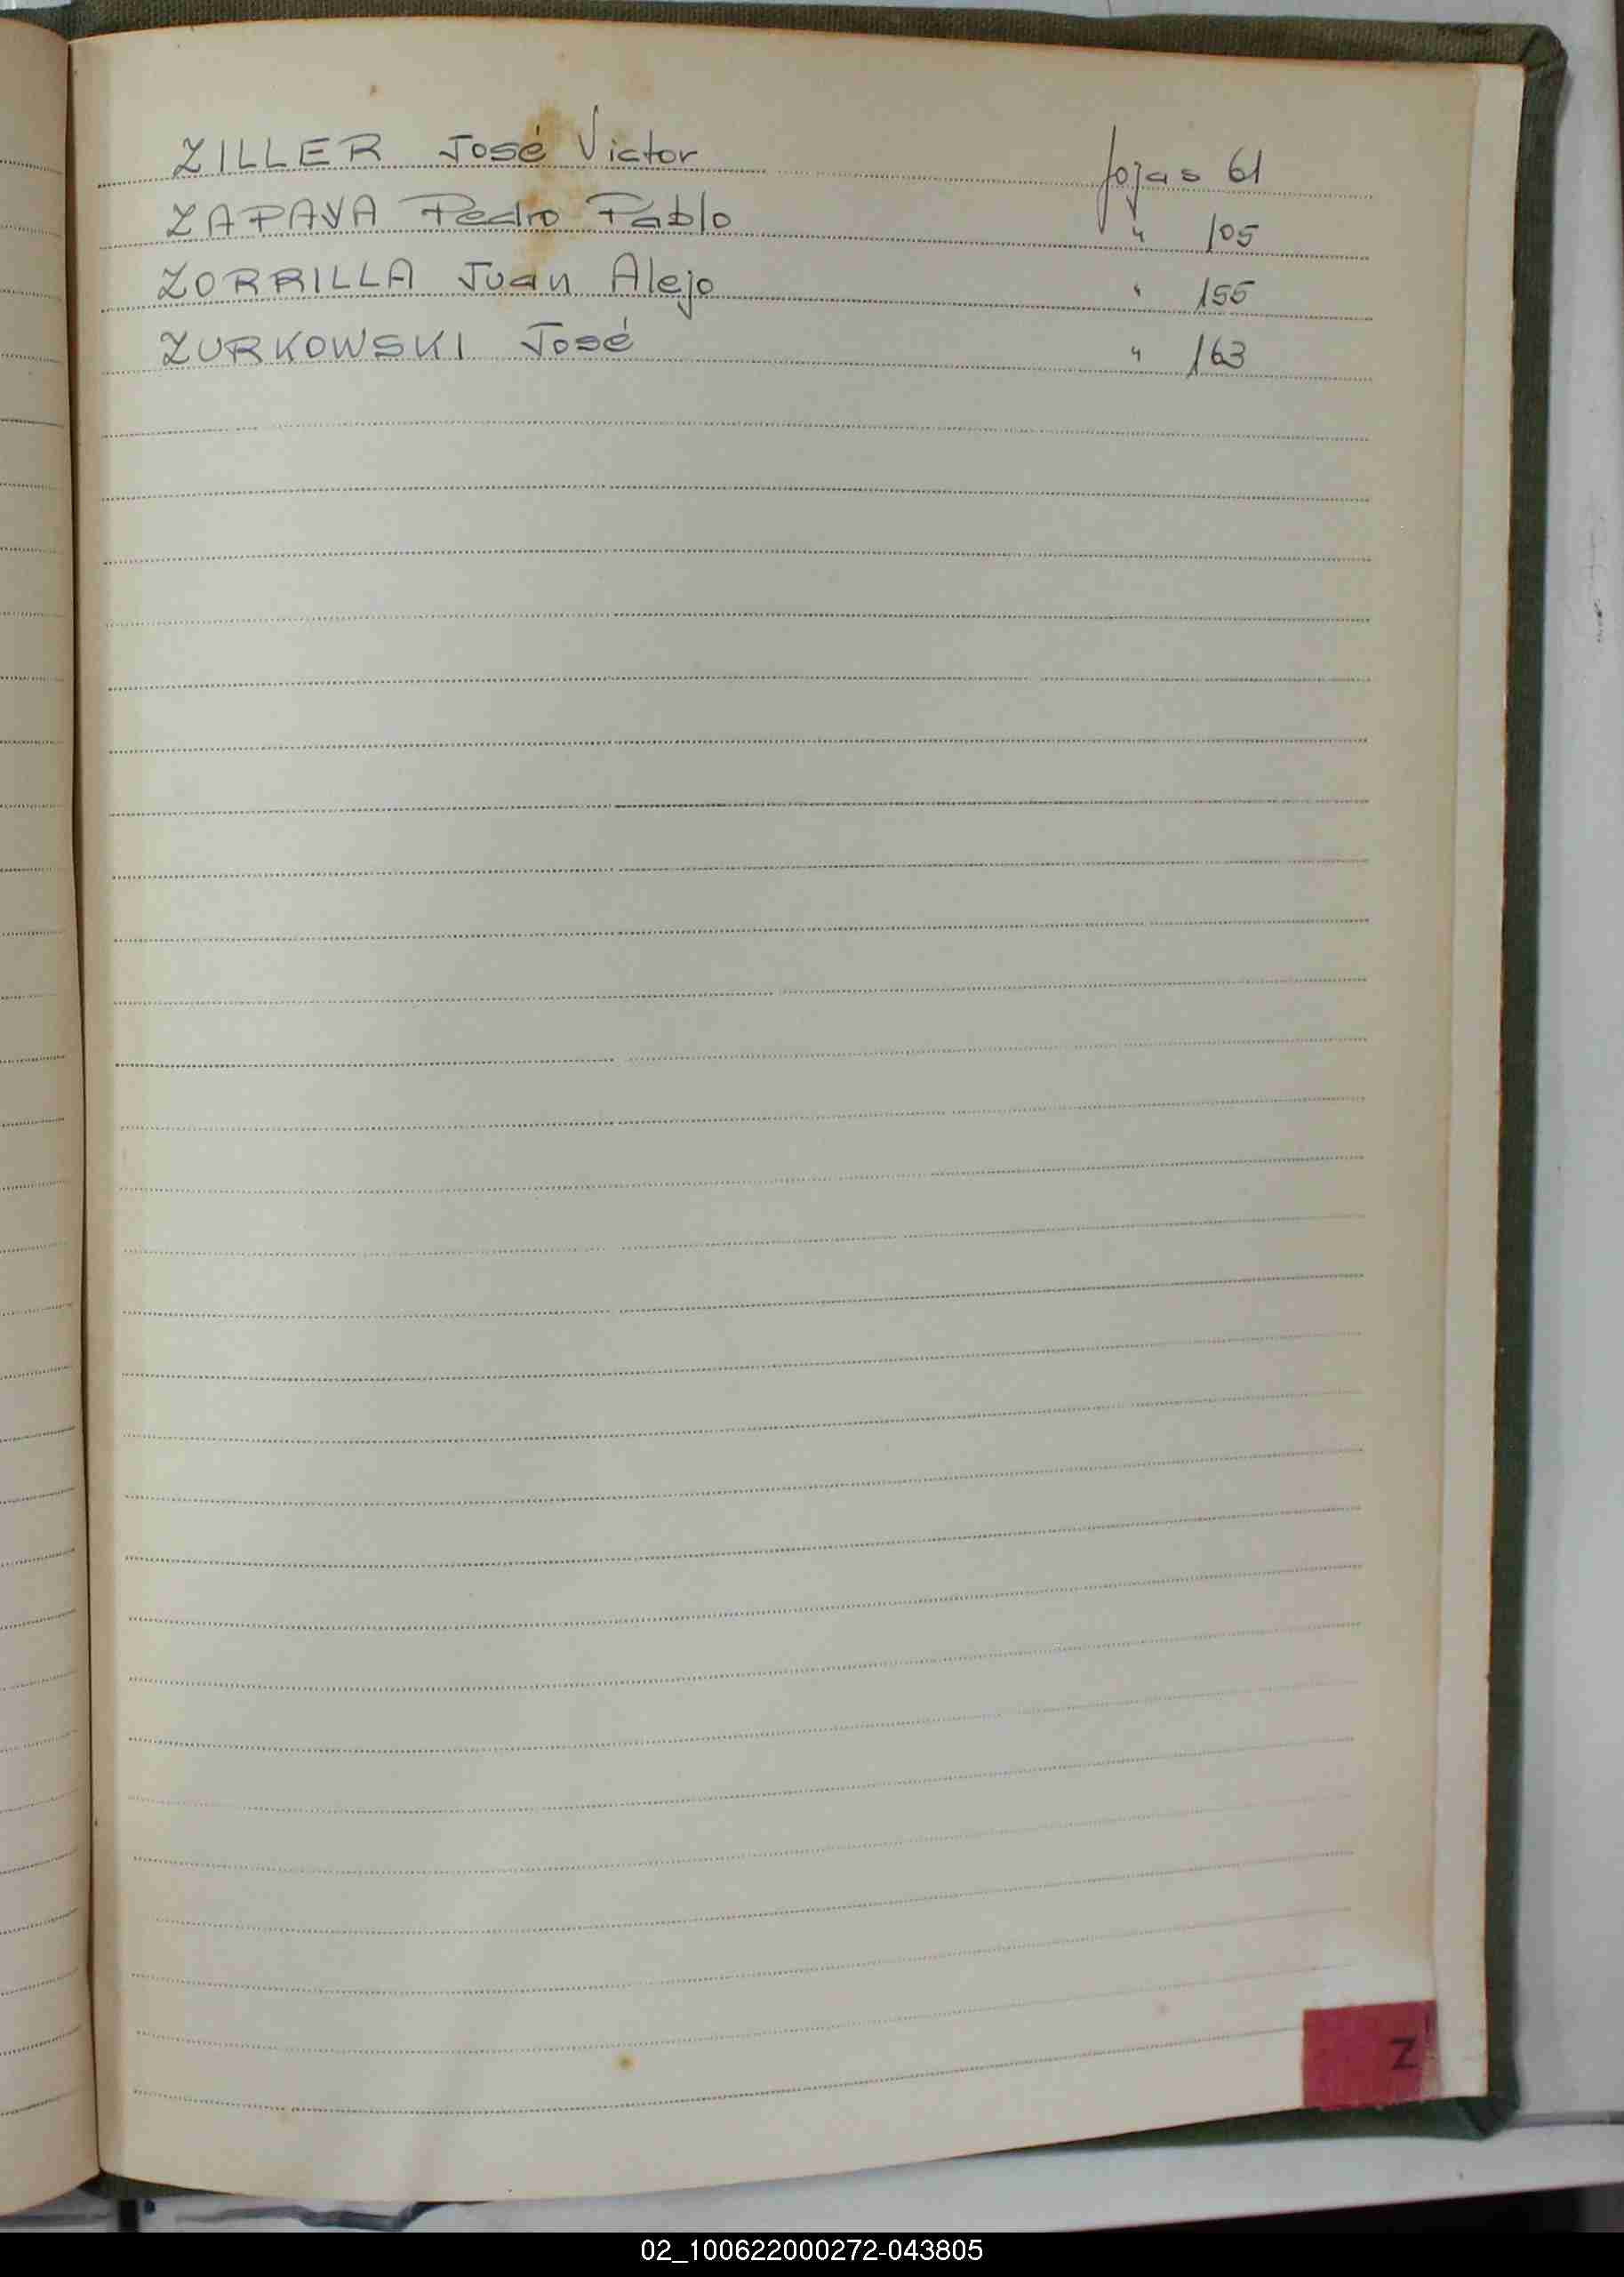 ZILLER José Victor fojas 61
ZAPAYA Pedro Pablo " 105
ZORRILLA Juan Alejo " 155
ZURKOWSKI José " 163
Z
02_100622000272-043805